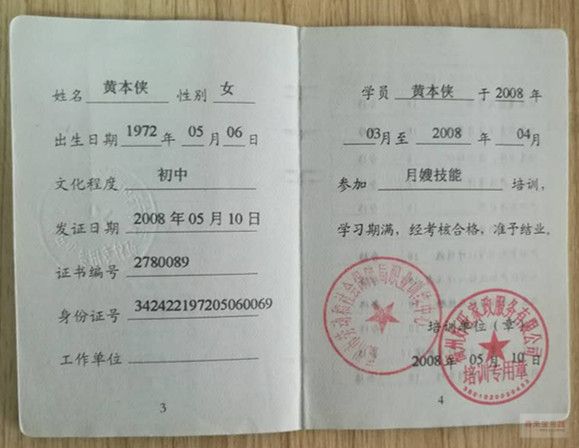 姓名 黄本侠 性别 女
出生日期 1972 年 05 月 06 日
文化程度 初中
发证日期 2008 年 05 月 10 日
证书编号 2780089
身份证号 342422197205060069
工作单位
3
学员 黄本侠 于 2008 年
03 月至 2008 年 04 月
参加 月嫂技能 培训，
学习期满，经考核合格，准予结业。
培训单位（章）
2008 年 05 月 10 日
家政服务有限公司
培训专用章
4